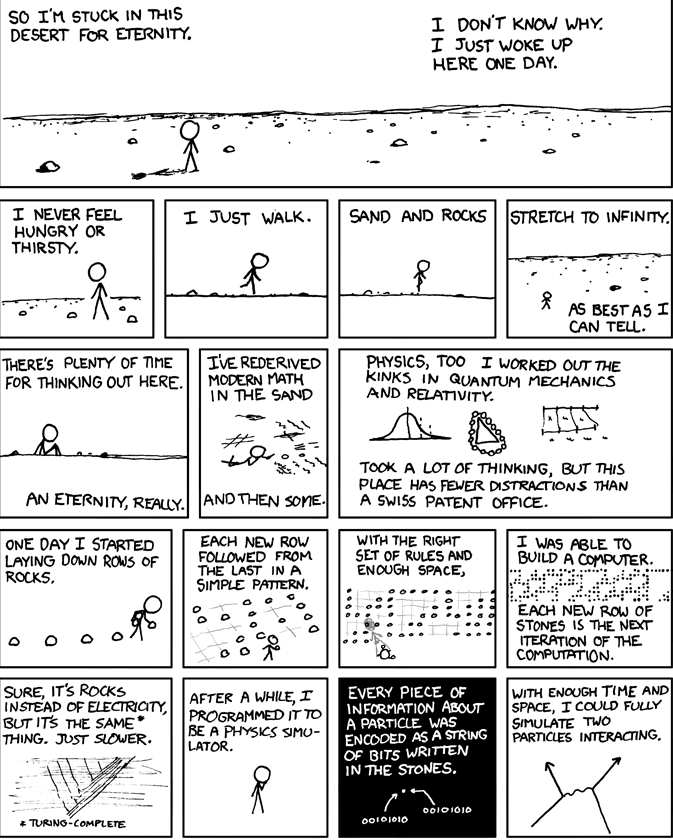 SO I'M STUCK IN THIS
DESERT FOR ETERNITY.
I DON'T KNOW WHY.
I JUST WOKE UP
HERE ONE DAY.
I NEVER FEEL
HUNGRY OR
THIRSTY.
I JUST WALK.
SAND AND ROCKS
STRETCH TO INFINITY.
AS BEST AS I
CAN TELL.
THERE'S PLENTY OF TIME
FOR THINKING OUT HERE.
AN ETERNITY, REALLY.
I'VE REDERIVED
MODERN MATH
IN THE SAND
AND THEN SOME.
PHYSICS, TOO I WORKED OUT THE
KINKS IN QUANTUM MECHANICS
AND RELATIVITY.
TOOK A LOT OF THINKING, BUT THIS
PLACE HAS FEWER DISTRACTIONS THAN
A SWISS PATENT OFFICE.
ONE DAY I STARTED
LAYING DOWN ROWS OF
ROCKS.
EACH NEW ROW
FOLLOWED FROM
THE LAST IN A
SIMPLE PATTERN.
WITH THE RIGHT
SET OF RULES AND
ENOUGH SPACE,
I WAS ABLE TO
BUILD A COMPUTER.
EACH NEW ROW OF
STONES IS THE NEXT
ITERATION OF THE
COMPUTATION.
SURE, IT'S ROCKS
INSTEAD OF ELECTRICITY,
BUT IT'S THE SAME*
THING. JUST SLOWER.
* TURING-COMPLETE
AFTER A WHILE, I
PROGRAMMED IT TO
BE A PHYSICS SIMU-
LATOR.
EVERY PIECE OF
INFORMATION ABOUT
A PARTICLE WAS
ENCODED AS A STRING
OF BITS WRITTEN
IN THE STONES.
00101010
00101010
WITH ENOUGH TIME AND
SPACE, I COULD FULLY
SIMULATE TWO
PARTICLES INTERACTING.